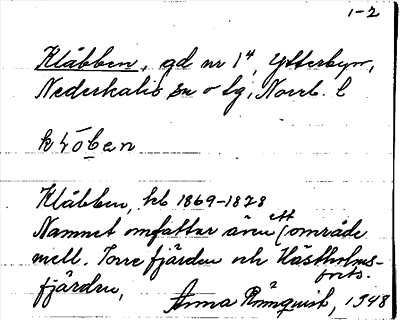 1-2
Klåbben, gd nr 1⁴, Ytterbyn,
Nederkalix sn o tg, Norrb. l
Klåbben, hb 1869-1878
Namnet omfattar även ett område
mell. Torefjärden och Hästholms-
fjärden, forts.
Anna Rönnquist, 1948